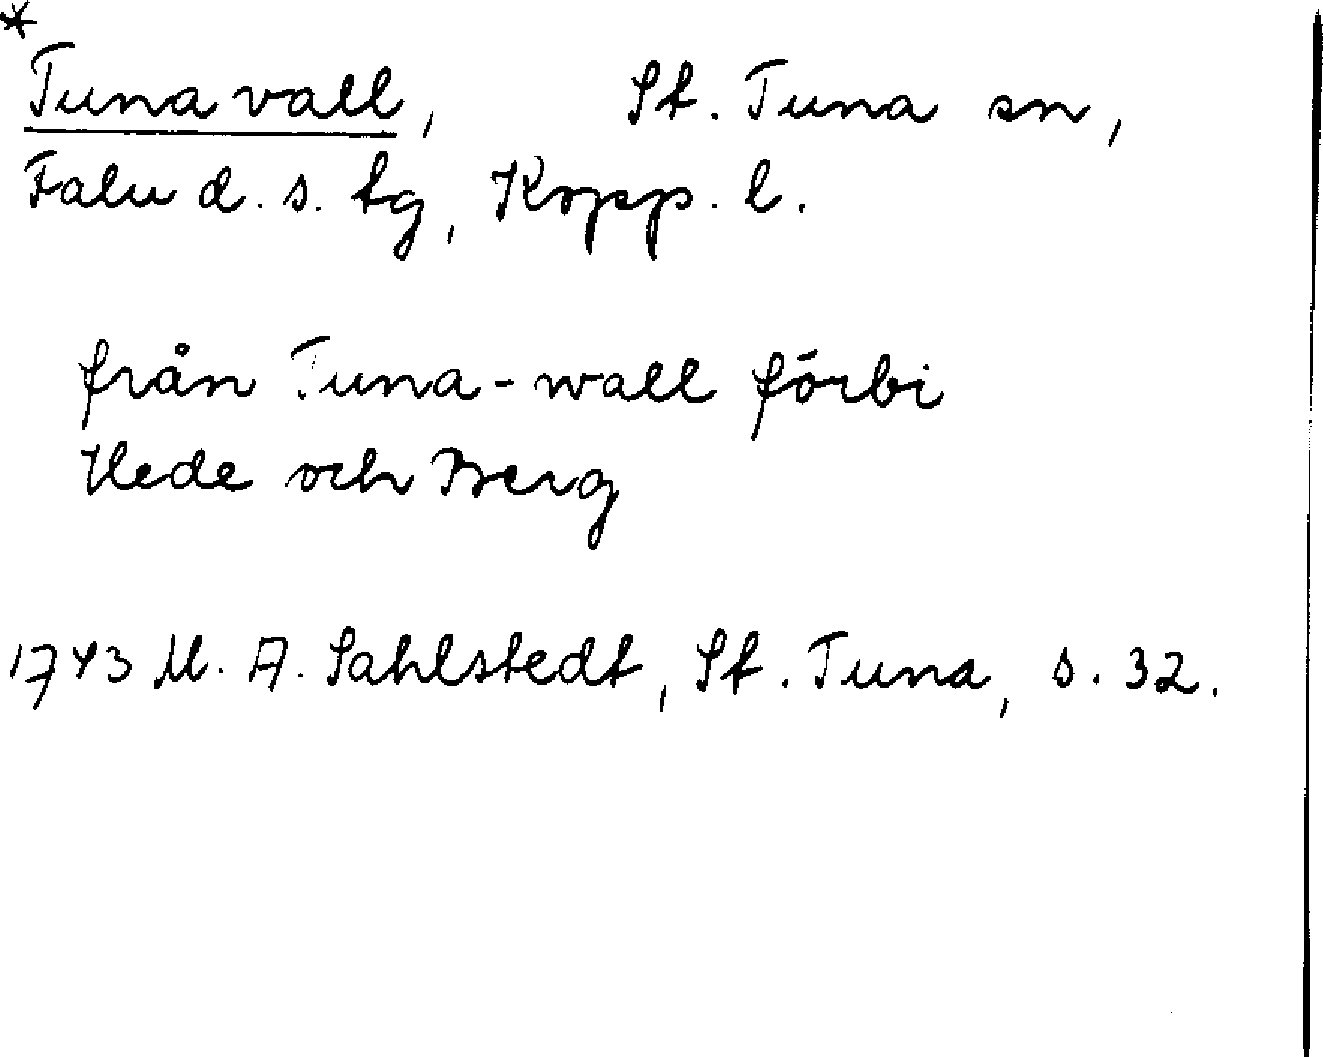 *
Tunavall, St. Tuna sn,
Falu d. s. tg, Kopp. l.
från Tuna-wall förbi
Hede och Berg
1743 M. A. Sahlstedt, St. Tuna, s. 32.